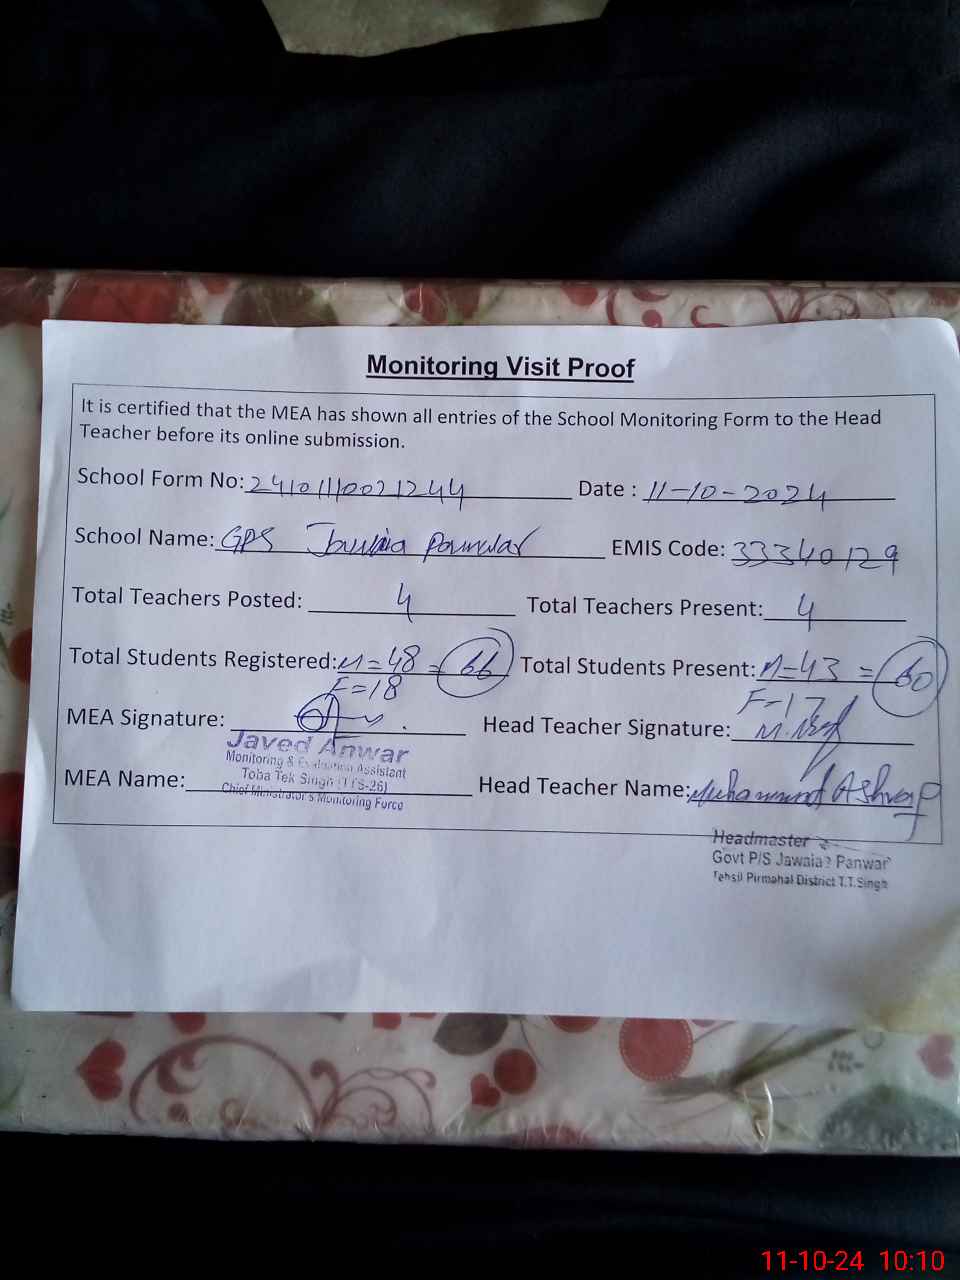 Monitoring Visit Proof
It is certified that the MEA has shown all entries of the School Monitoring Form to the Head
Teacher before its online submission.
School Form No: 2410111002 1244 Date : 11-10-2024
School Name: GPS Panwar EMIS Code: 33340129
Total Teachers Posted: 4 Total Teachers Present: 4
Total Students Registered: M=48 = 66 Total Students Present: M=43 = 60
F=18 F=17
MEA Signature: Head Teacher Signature:
Javed Anwar
Monitoring & Evaluation Assistant
Toba Tek Singh (TTS-26)
Chief Ministrator's Monitoring Force
MEA Name: Head Teacher Name: Muhammad Ashraf
Headmaster
Govt P/S Jawaia? Panwar
Tehsil Pirmahal District T.T.Singh
11-10-24 10:10